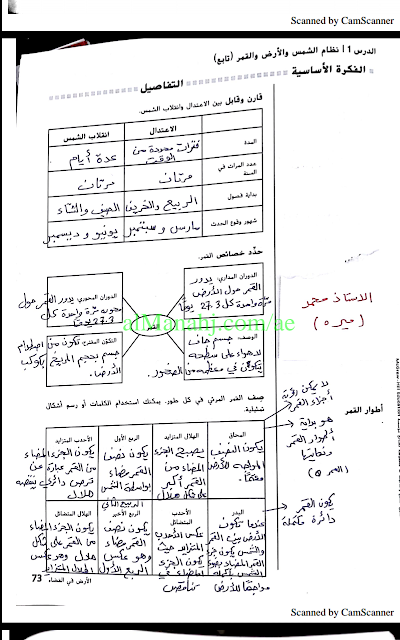 Scanned by CamScanner
الدرس 1 | نظام الشمس والأرض والقمر (تابع)
الفكرة الأساسية
التفاصيل
قارن وقابل بين الاعتدال وانقلاب الشمس.
الاعتدال
انقلاب الشمس
المدة
فترات محدودة من الوقت
عدة أيام
عدد المرات في السنة
مرتان
مرتان
بداية فصول
الربيع والخريف
الصيف والشتاء
شهور وقوع الحدث
مارس و سبتمبر
يونيو و ديسمبر
حدّد خصائص القمر.
الدوران المداري: يدور
القمر حول الأرض
مرة واحدة كل 27.3 يوماً
الدوران المحوري: يدور القمر حول
محوره مرة واحدة كل
27.3 يوماً
القمر
الوصف: جسم جاف
لا هواء على سطحه
يتكون في معظمه من الصخور
التكوّن المقترح: تكون من اصطدام
جسم بحجم المريخ بكوكب
الأرض.
almanahj.com/ae
الاستاذ محمد
أطوار القمر
صِف القمر المرئي في كل طور. يمكنك استخدام الكلمات أو رسم أشكال تمثيلية.
لا يمكن رؤية
أجزاء القمر
هو بداية
أطوار القمر
ونهايتها
يكون القمر
دائرة مكتملة
المحاق
الهلال المتزايد
الربع الأول
الأحدب المتزايد
يكون النصف
المواجه للأرض
يصبح الجزء
المضاء من
القمر أكبر
على شكل هلال
يكون نصف
القمر مضاء
بواسطة الشمس
يكون الجزء المضاء
من القمر عبارة عن
قرص دائري ينقصه
هلال
البدر
الأحدب المتضائل
الربع الأخير
الهلال المتضائل
عندما تكون
الأرض بين القمر
والشمس يكون
عكس الأحدب
المتزايد حيث
يكون الجزء
المضاء في
تناقص
يكون نصف
القمر مضاء
وهو عكس
الربع الأول
يكون الجزء المضاء
من القمر على شكل
هلال وهو عكس
الهلال المتزايد
مواجهًا للأرض
73
الأرض في الفضاء
Scanned by CamScanner